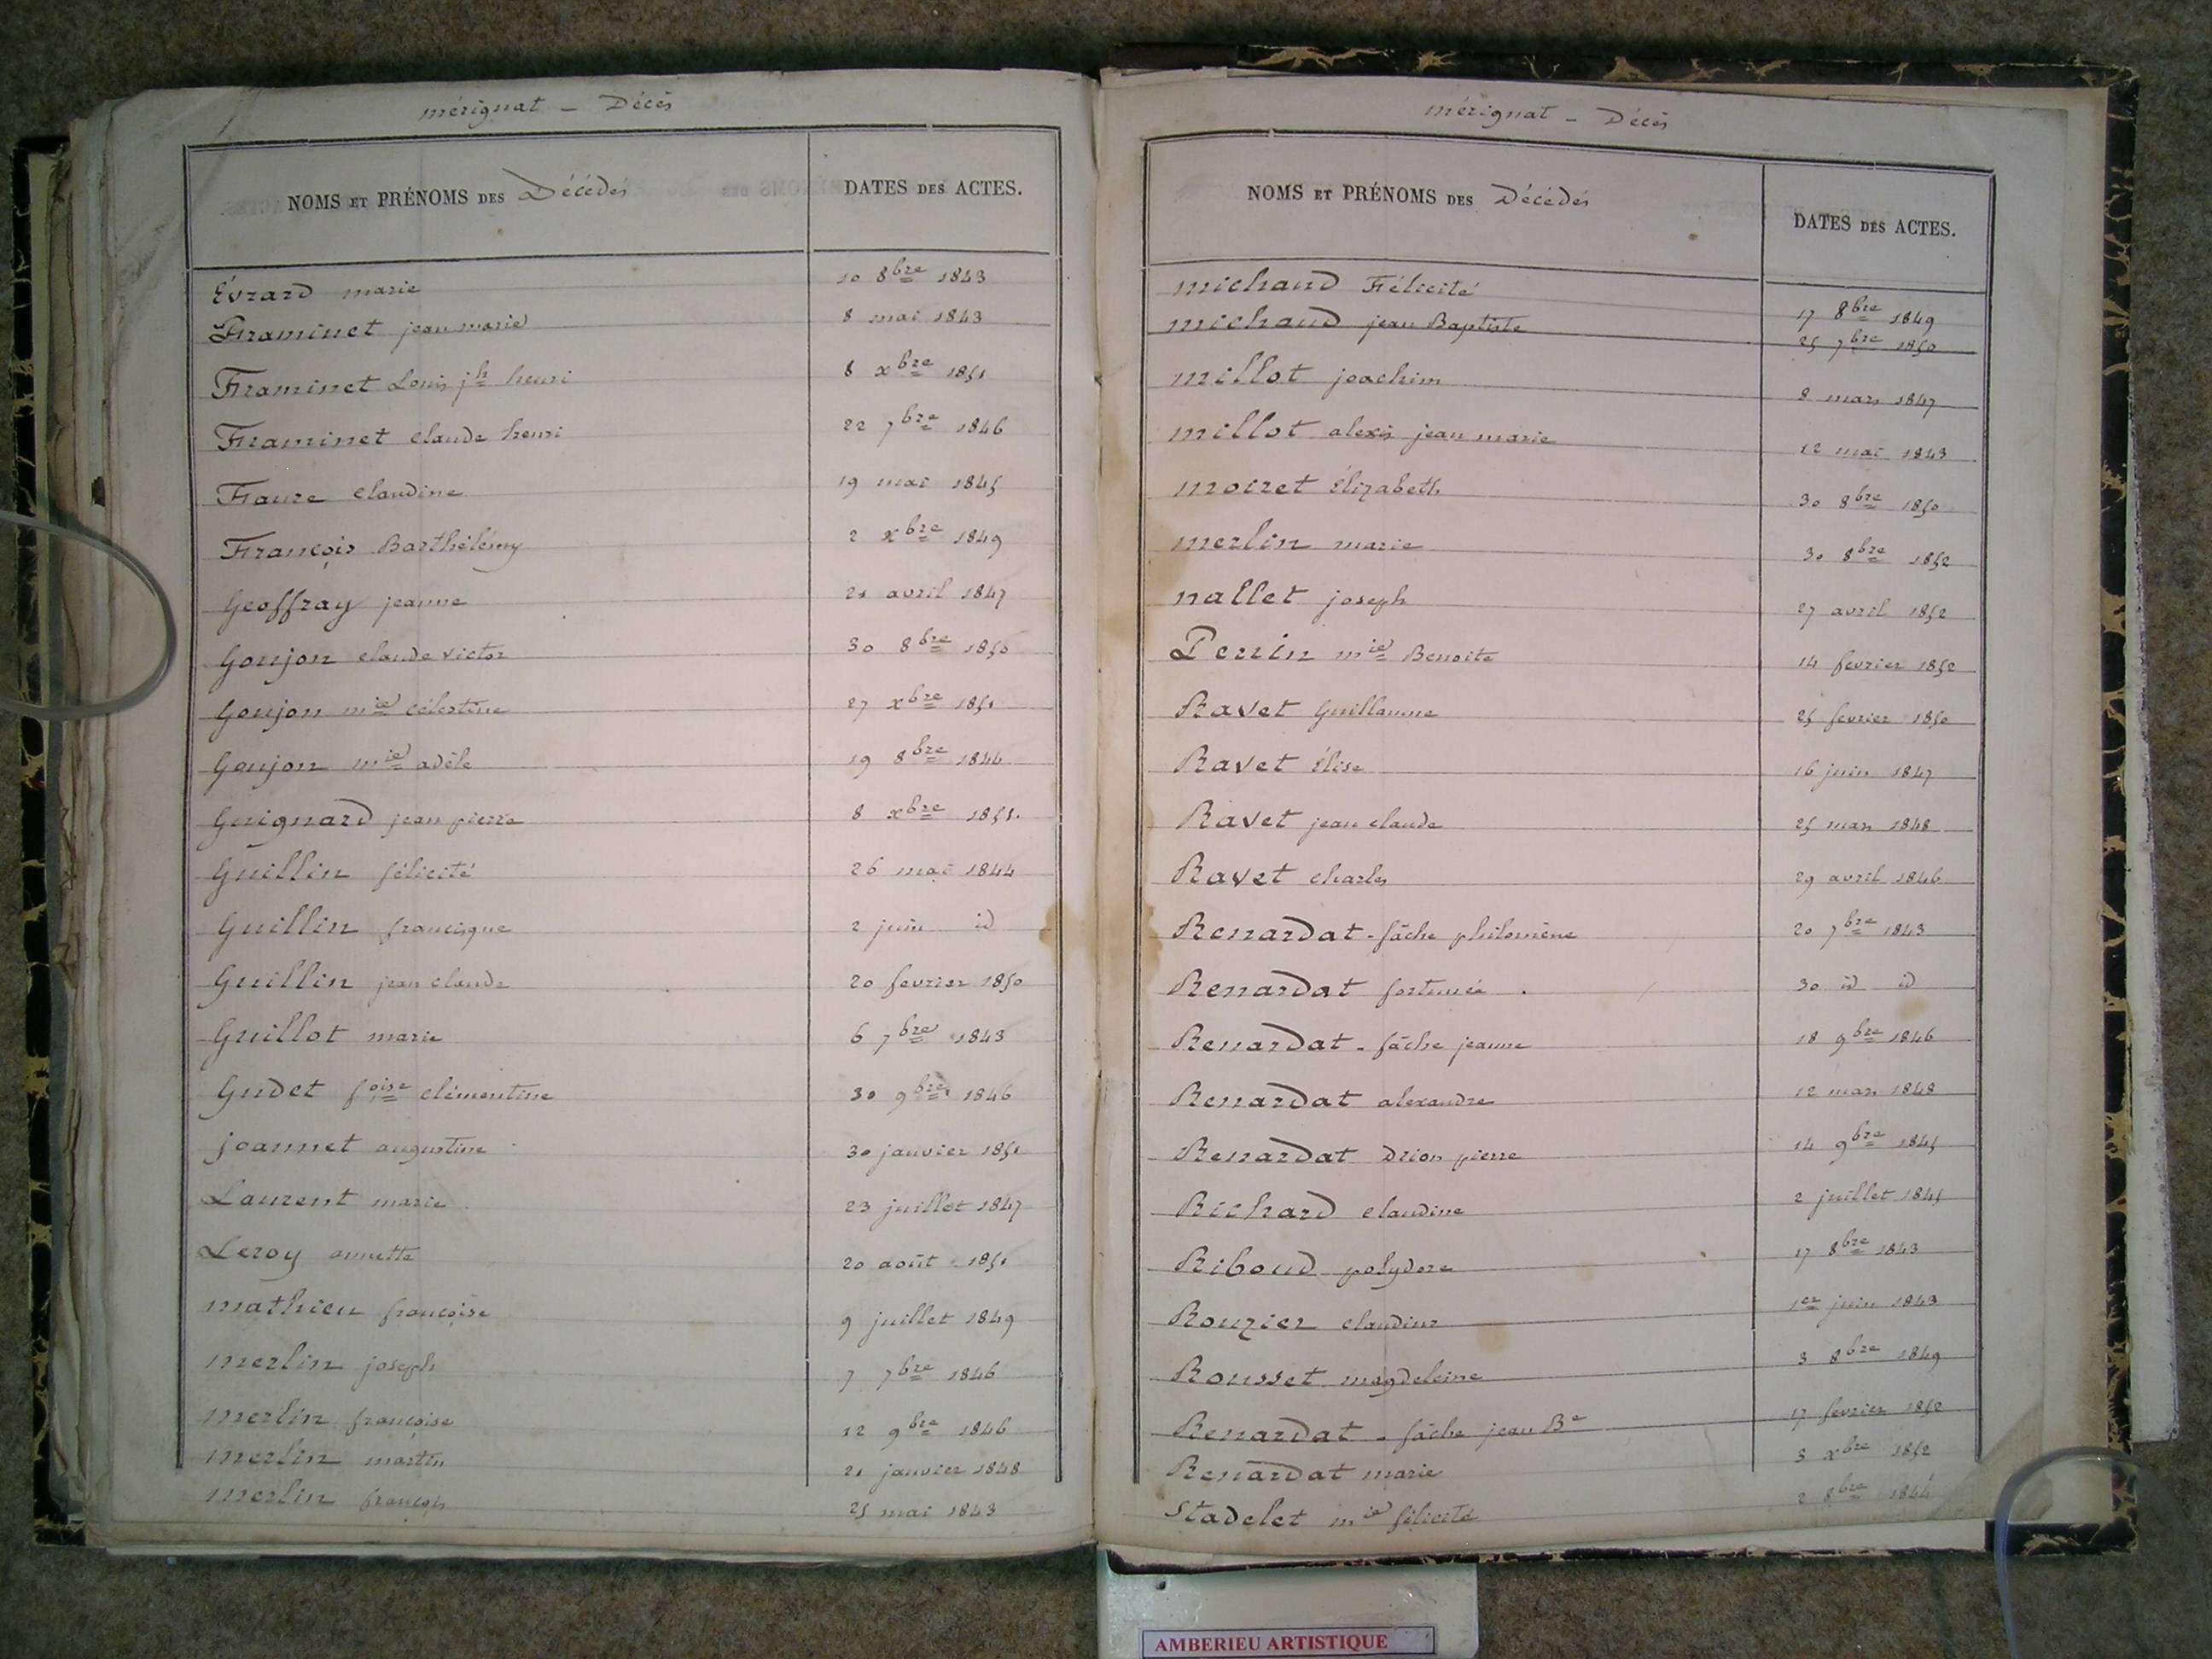 mérignat - Décès
NOMS ET PRÉNOMS DES Décédés DATES DES ACTES.
Évrard marie 10 8bre 1843
Framinet jean marie 8 mai 1843
Framinet Louis jh henri 8 xbre 1851
Framinet claude henri 22 7bre 1846
Faure claudine 19 mai 1845
François Barthélémy 2 xbre 1849
Geoffray jeanne 21 avril 1847
Goujon claude victor 30 8bre 1850
Goujon mie célestine 27 xbre 1851
Goujon mie adèle 19 8bre 1844
Guignard jean pierre 8 xbre 1851.
Guillin félicité 26 mai 1844
Guillin francisque 2 juin id
Guillin jean claude 20 fevrier 1850
Guillot marie 6 7bre 1843
Gudet foise clémentine 30 9bre 1846
joannet augustine 30 janvier 1851
Laurent marie 23 juillet 1847
Leroy annette 20 août 1851
mathieu françoise 9 juillet 1849
merlin joseph 7 7bre 1846
merlin françoise 12 9bre 1846
merlin martin 21 janvier 1848
merlin françois 25 mai 1843
mérignat - Décès
NOMS ET PRÉNOMS DES Décédés DATES DES ACTES.
michaud Félicité 17 8bre 1849
michaud jean Baptiste 25 7bre 1850
millot joachim 8 mars 1847
millot alexis jean marie 12 mai 1843
moiret Élizabeth 30 8bre 1850
merlin marie 30 8bre 1852
nallet joseph 27 avril 1852
Perrin mie Benoite 14 fevrier 1852
Ravet Guillaume 25 fevrier 1850
Ravet Élise 16 juin 1847
Ravet jean claude 25 mars 1848
Ravet charles 29 avril 1846
Renardat - fâche philomène 20 7bre 1843
Renardat fortunée 30 id id
Renardat - fâche jeanne 18 9bre 1846
Renardat alexandre 12 mars 1848
Renardat Drion pierre 14 9bre 1845
Richard claudine 2 juillet 1845
Riboud polydore 17 8bre 1843
Rouzier claudine 1er juin 1843
Rousset magdeleine 3 8bre 1849
Renardat - fâche jean Be 17 fevrier 1852
Renardat marie 3 xbre 1852
Stadelet mie félicité 2 8bre 1844
AMBERIEU ARTISTIQUE